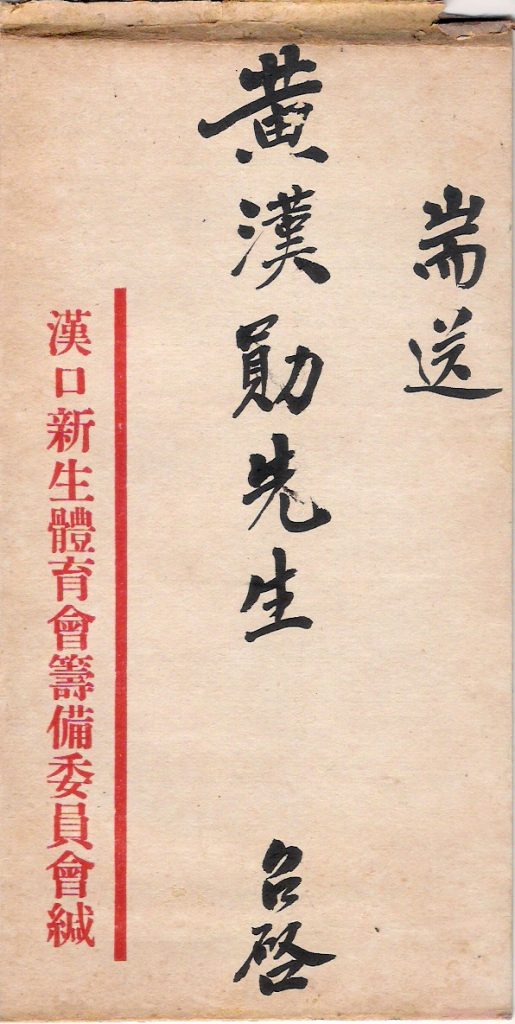 耑送
黃漢勛先生 台啓
漢口新生體育會籌備委員會緘